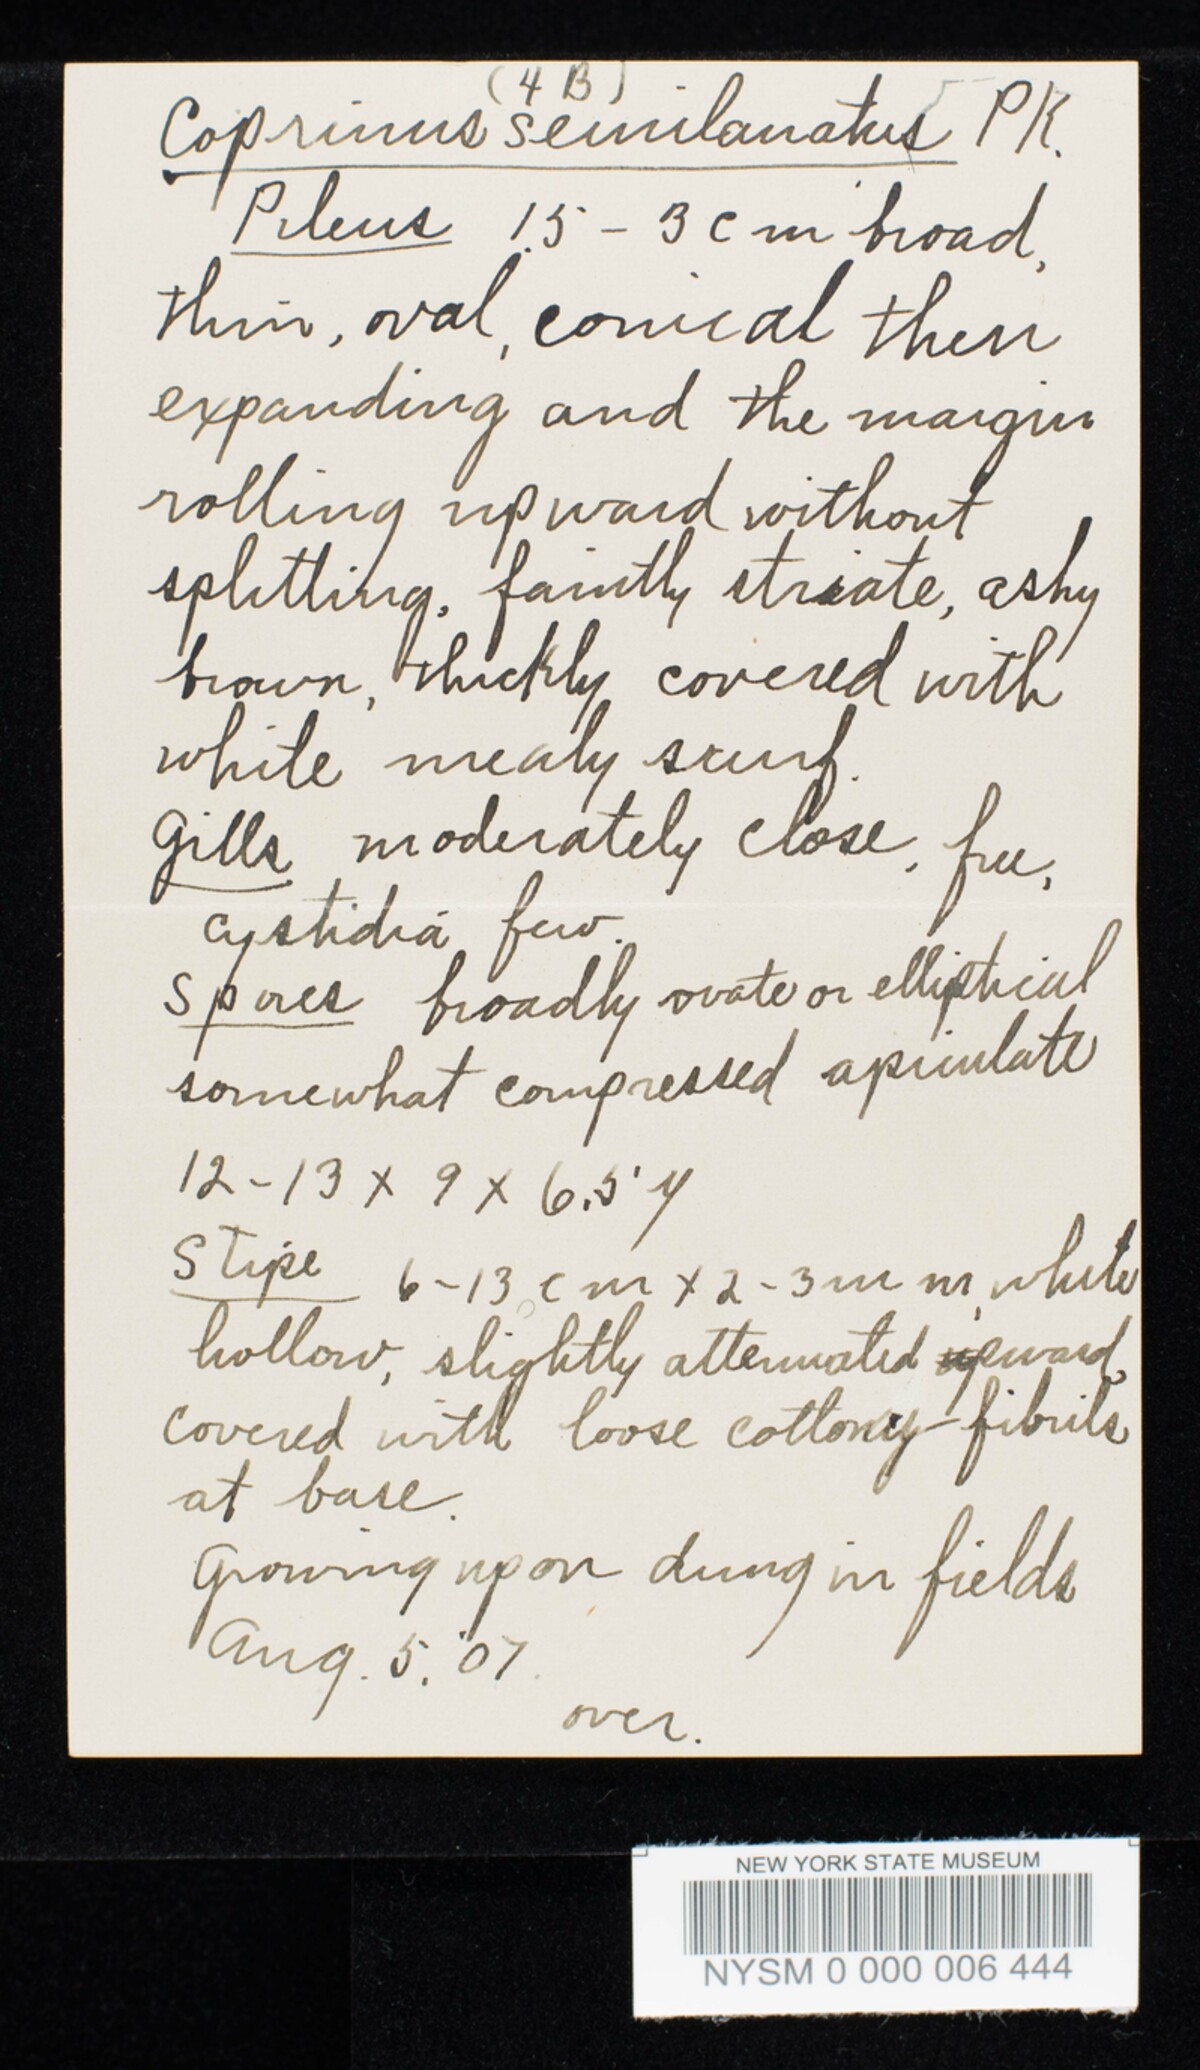 (4 B)
Coprinus semilanatus PK.
Pileus 1.5 - 3 cm broad,
thin, oval, conical then
expanding and the margin
rolling upward without
splitting, faintly striate, ashy
brown, thickly covered with
white mealy scurf.
Gills moderately close, free,
cystidia few.
Spores broadly ovate or elliptical
somewhat compressed apiculate
12-13 x 9 x 6.5 μ
Stipe 6-13 cm x 2-3 mm, white
hollow, slightly attenuated upward,
covered with loose cottony fibrils
at base.
Growing upon dung in fields
Aug. 5. '07.
over.
NEW YORK STATE MUSEUM
NYSM 0 000 006 444